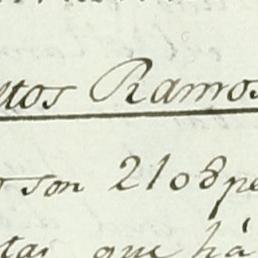 ttos Ramos
o son 2108 pe
tas que há